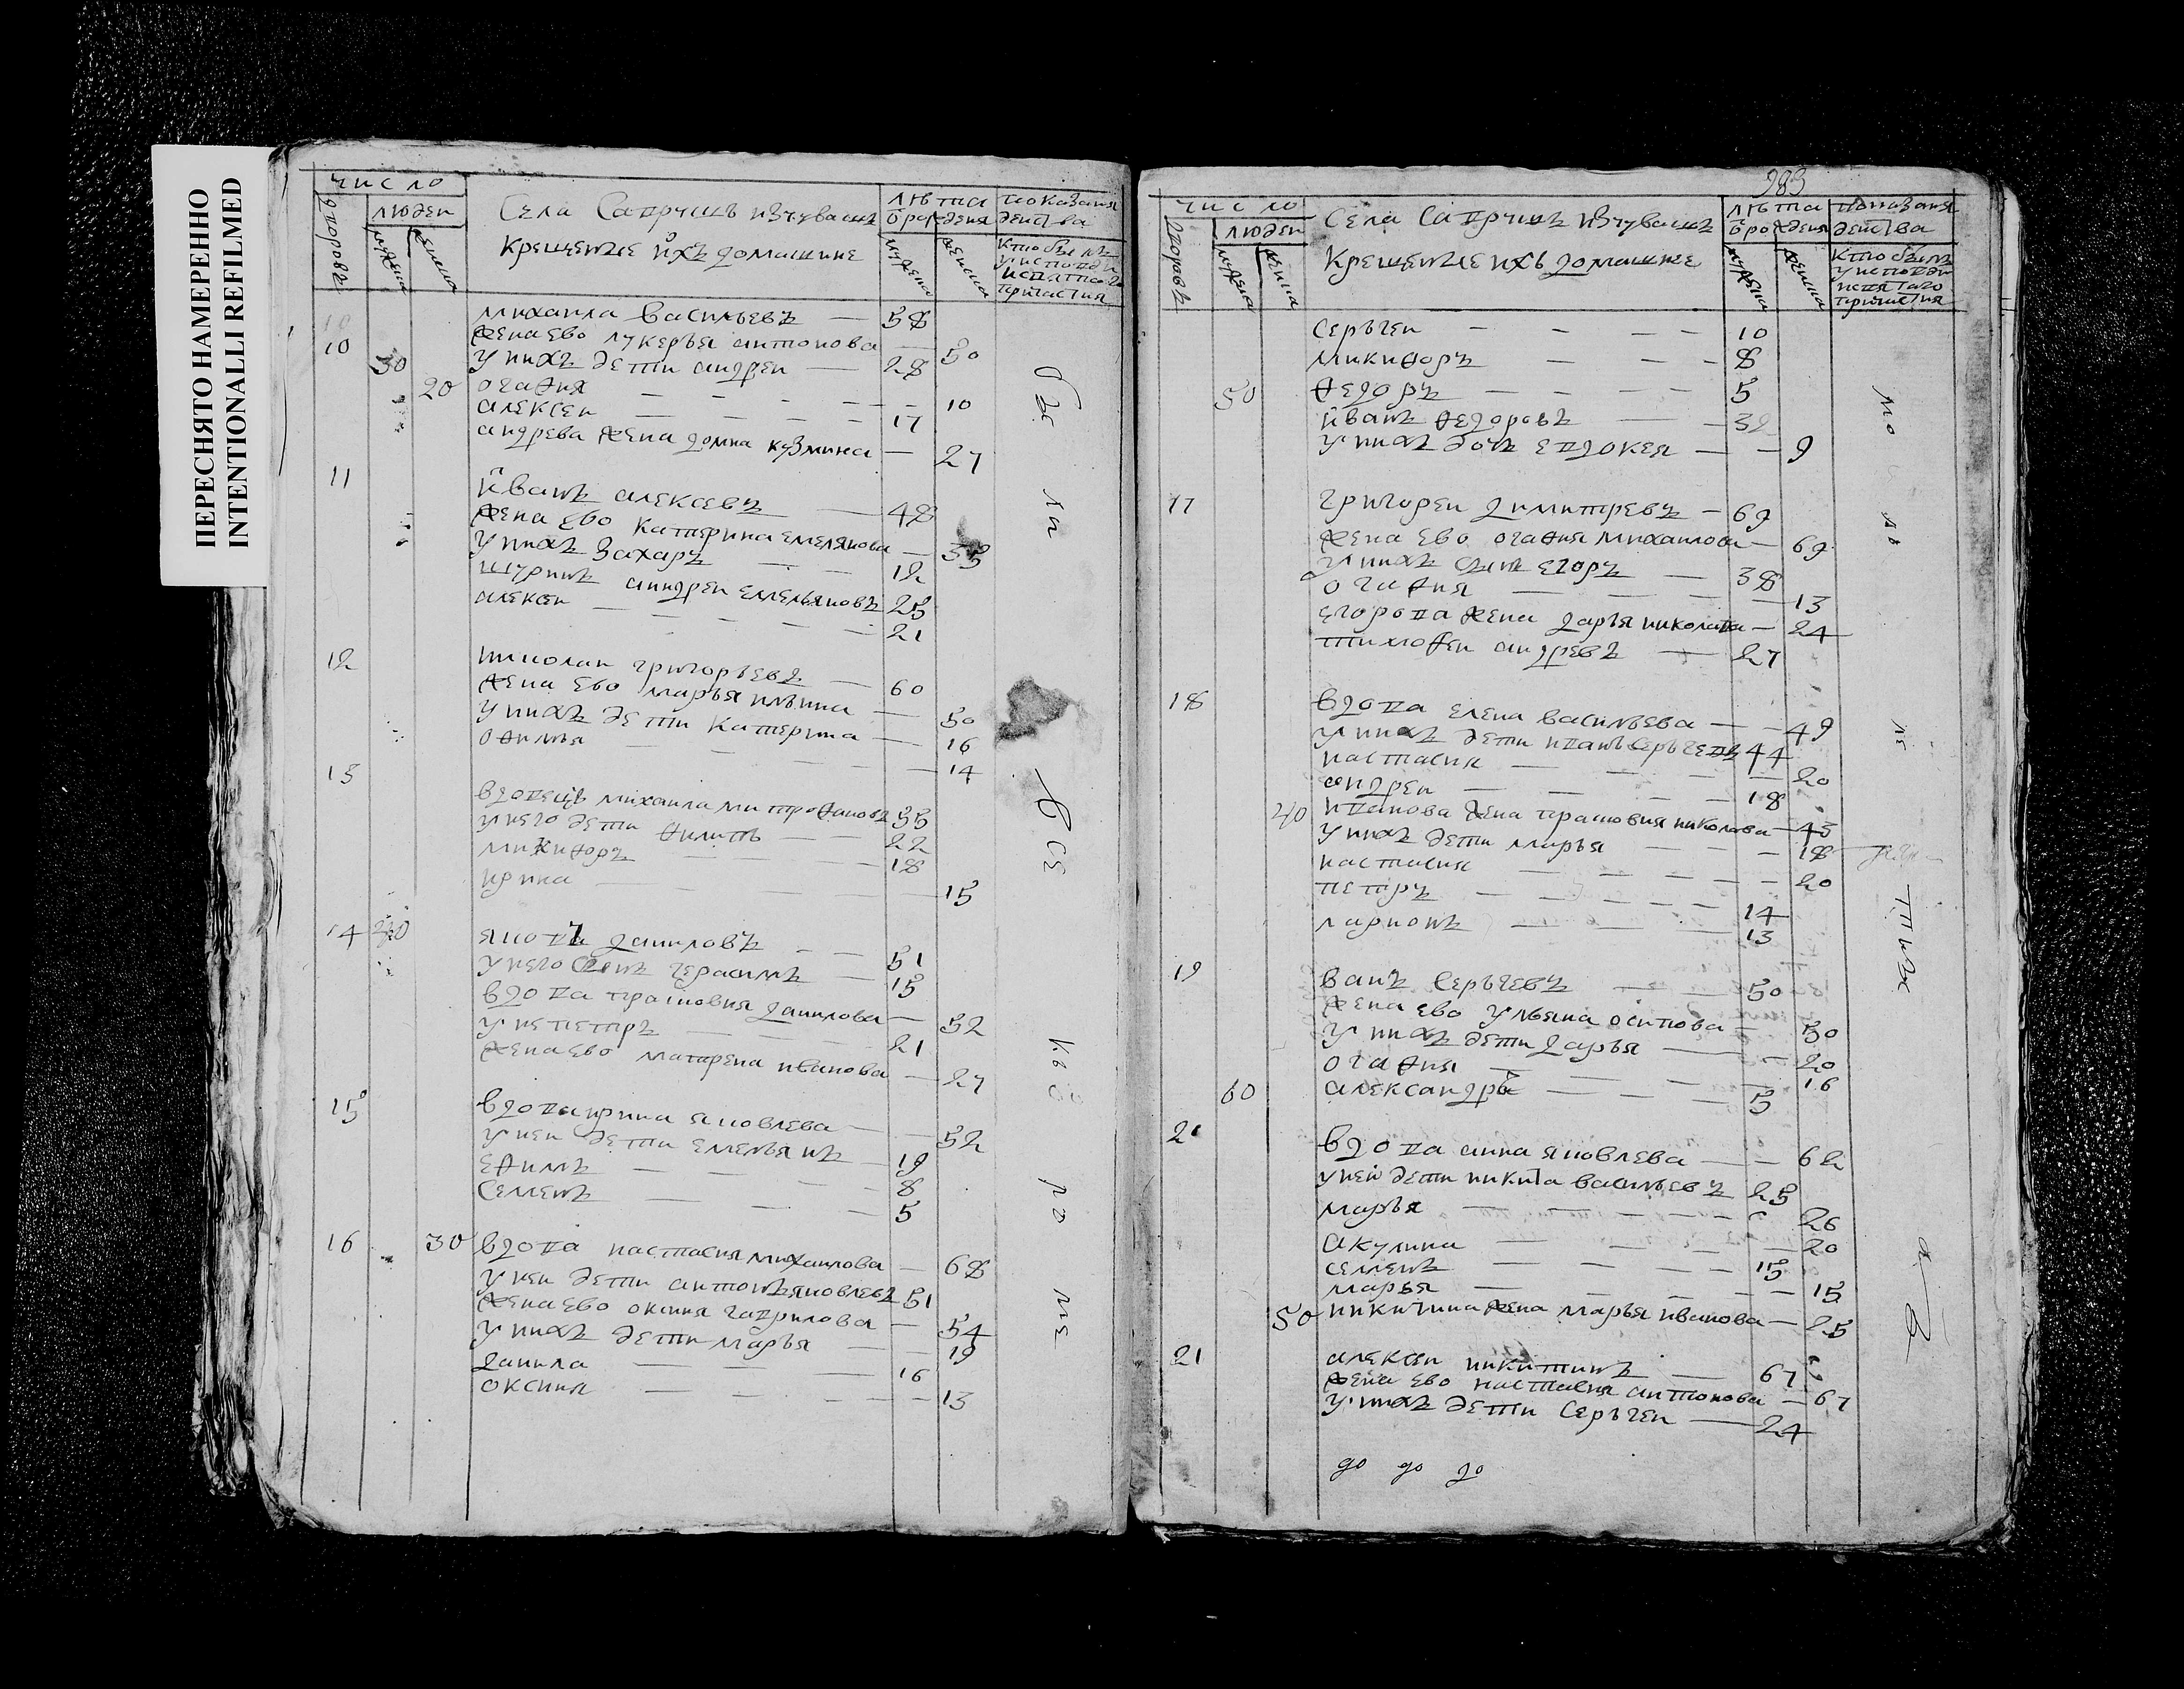 ПЕРЕСНЯТО НАМЕРЕННО
INTENTIONALLI REFILMED
число
дворовъ
людеи
мужска
женска
Села Сапрущъ исчувашъ
крещеные ихъ домашние
лѣта
ѿрождения
мужска
женска
показания
деиства
кто былъ
уисповѣди
исвятаго
причастия
10
михаила васильевъ — 58
жена ево лукерья антонова — 50
10 30 у нихъ дети андреи — 28
20 огафия — 10
алексеи — 17
андрева жена домна кузмина — 27
11
иванъ алексевъ — 48
жена ево катерина емелянова — 35
у нихъ захаръ — 12
шуринъ андреи емельяновъ 25
алексеи — 21
12 николаи григорьевъ — 60
жена ево марья ильина — 50
у нихъ дети катерина — 16
офимья — 14
13
вдовецъ михаила митрофановъ 55
у него дети филипъ — 22
микифоръ — 18
ирина — 15
14 40 яковъ даниловъ — 51
у него сынъ герасимъ — 15
вдова прасковия данилова — 52
у не петръ — 21
жена ево матрена иванова — 27
15 вдова ирина яковлева — 52
у неи дети емельянъ — 19
ефимъ — 8
семенъ — 5
16 30 вдова настасия михаилова — 68
у неи дети антонъ яковлевъ 51
жена ево оксиния гаврилова — 54
у нихъ дети марья — 19
данила — 16
оксиния — 13
бы
ли
все
кь
ро
ме
983
число
дворовъ
людеи
мужска
женска
Села Сапрущъ исчувашъ
крещеные ихъ домашние
лѣта
ѿрождения
мужска
женска
показания
деиства
кто былъ
уисповѣди
исвятаго
причастия
серьгеи — 10
микифоръ — 8
50 федоръ — 5
иванъ федоровъ — 32
у нихъ дочь евдокея — 9
17 григореи димитревъ — 69
жена ево огафия михаилова — 69
у нихъ сынъ егоръ — 38
огафия — 13
егорова жена дарья николава — 24
тимофеи андревъ — 27
18 вдова елена васильева — 49
у нихъ дети иванъ серьгевъ 44
настасия — 20
андреи — 18
40 иванова жена прасковия николава — 43
у нихъ дети марья — 18
настасия — 20
петръ — 14
ларионъ — 13
19 ванъ серьгевъ — 50
жена ево ульяна осипова — 50
у нихъ дети дарья — 20
огафия — 16
60 александръ — 5
20
вдова анна яковлева — 62
у неи дети никита васильевъ 25
марья — 26
акулина — 20
семенъ — 15
марья — 15
50 никитина жена марья иванова — 25
21 алексеи никитинъ — 67
жена ево настасия антонова — 67
у нихъ дети серьгеи — 24
до до до
мо
лѣ
ле
тныхъ